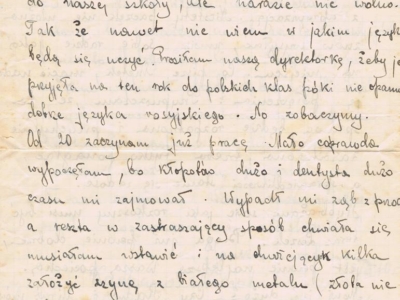 do naszej szkoły, ale narazie nie wolno.
Tak że nawet nie wiem w jakim język
będą się uczyć. Prosiłam naszą dyrektorkę, żeby je
przyjęła na ten rok do polskich klas póki nie opanu
dobrze języka rosyjskiego. No zobaczymy.
Od 20 zaczynam już pracę. Mało coprawda
wypoczęłam, bo kłopotów dużo i dentysta dużo
czasu mi zajmował. Wypadł mi ząb z przod
a reszta w zastraszający sposób chwiała się
musiałam wstawić i na chwiejących kilka
założyć szynę z białego metalu (złota nie